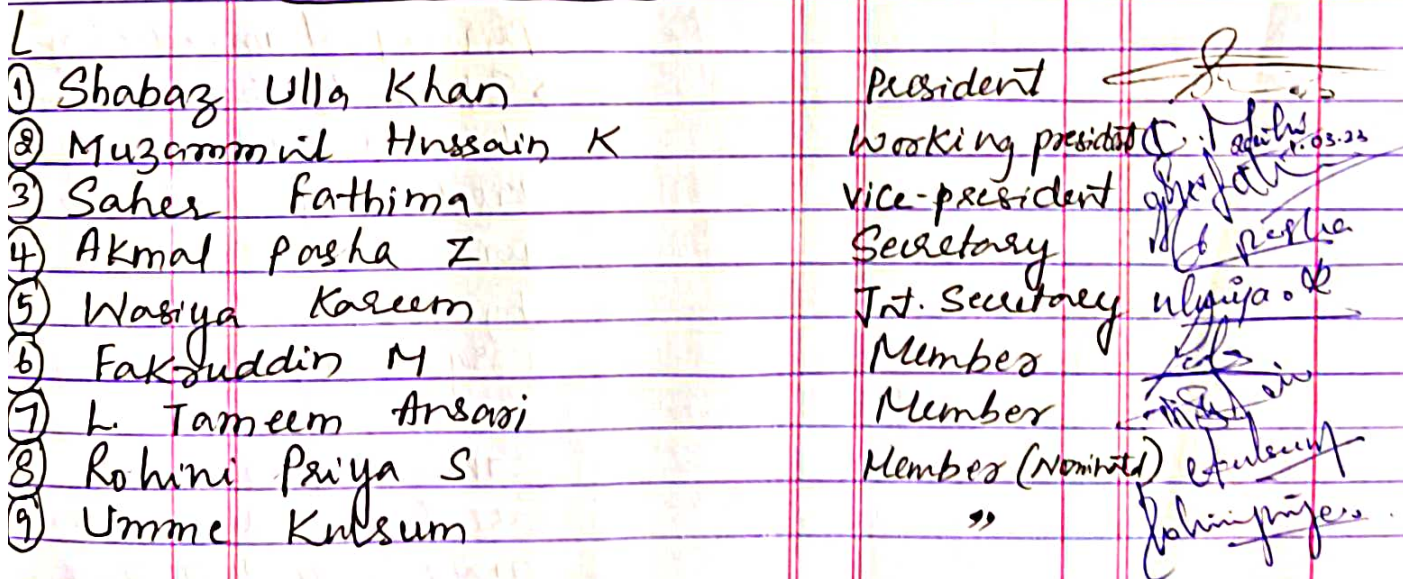 L
① Shabaz Ulla Khan President
② Muzammil Hussain K Working president 03.23
③ Saher Fathima Vice-president
④ Akmal Pasha Z Secretary Pasha
⑤ Wasiya Kareem Jnt. Secretary
⑥ Fakruddin M Member
⑦ L. Tameem Ansari Member
⑧ Rohini Priya S Member (Nominated)
⑨ Umme Kulsum "